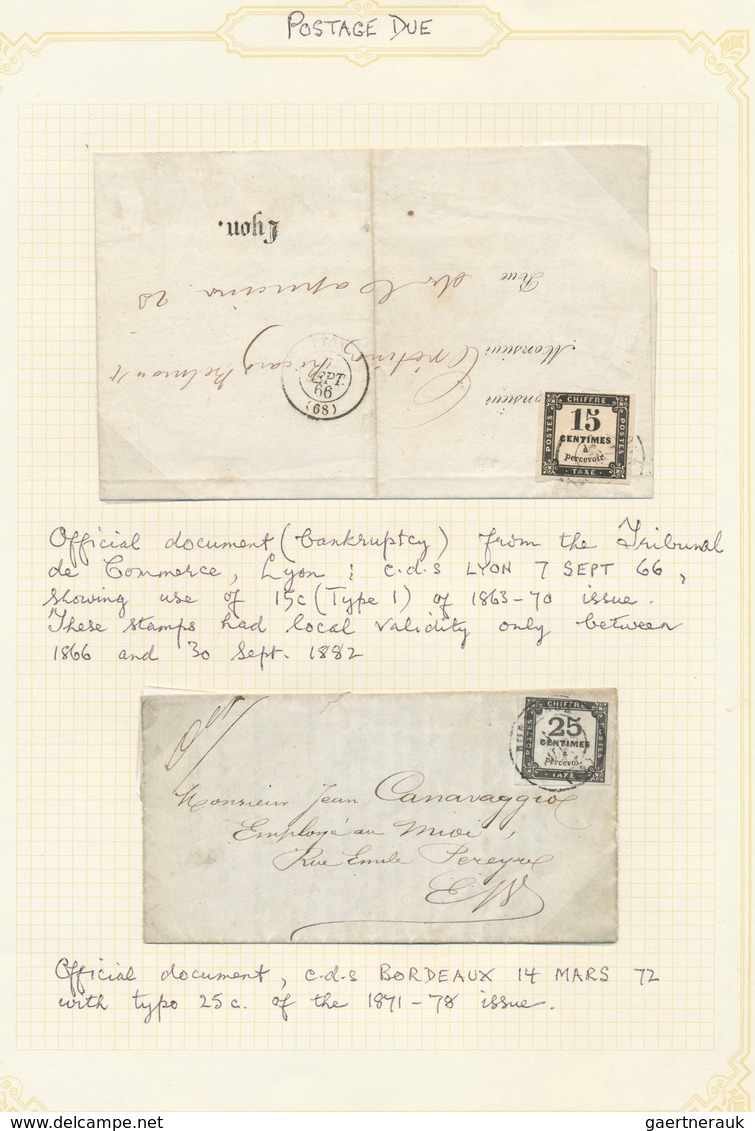 POSTAGE DUE
Lyon.
Rue des Capucins 20
Monsieur
SEPT.
66
(68)
CHIFFRE
POSTES 15 POSTES
CENTIMES
à
percevoir.
TAXE
Official document (bankruptcy) from the Tribunal
de Commerce, Lyon ; c.d.s LYON 7 SEPT 66,
showing use of 15c (Type 1) of 1863-70 issue.
These stamps had local validity only between
1866 and 30 Sept. 1882
CHIFFRE
POSTES 25 POSTES
CENTIMES
à
percevoir.
TAXE
Monsieur Jean Canavaggio
Employé au Midi,
Rue Emile Pereyre
E/V
Official document, c.d.s BORDEAUX 14 MARS 72
with typo 25c. of the 1871-78 issue.
gaertnerauk